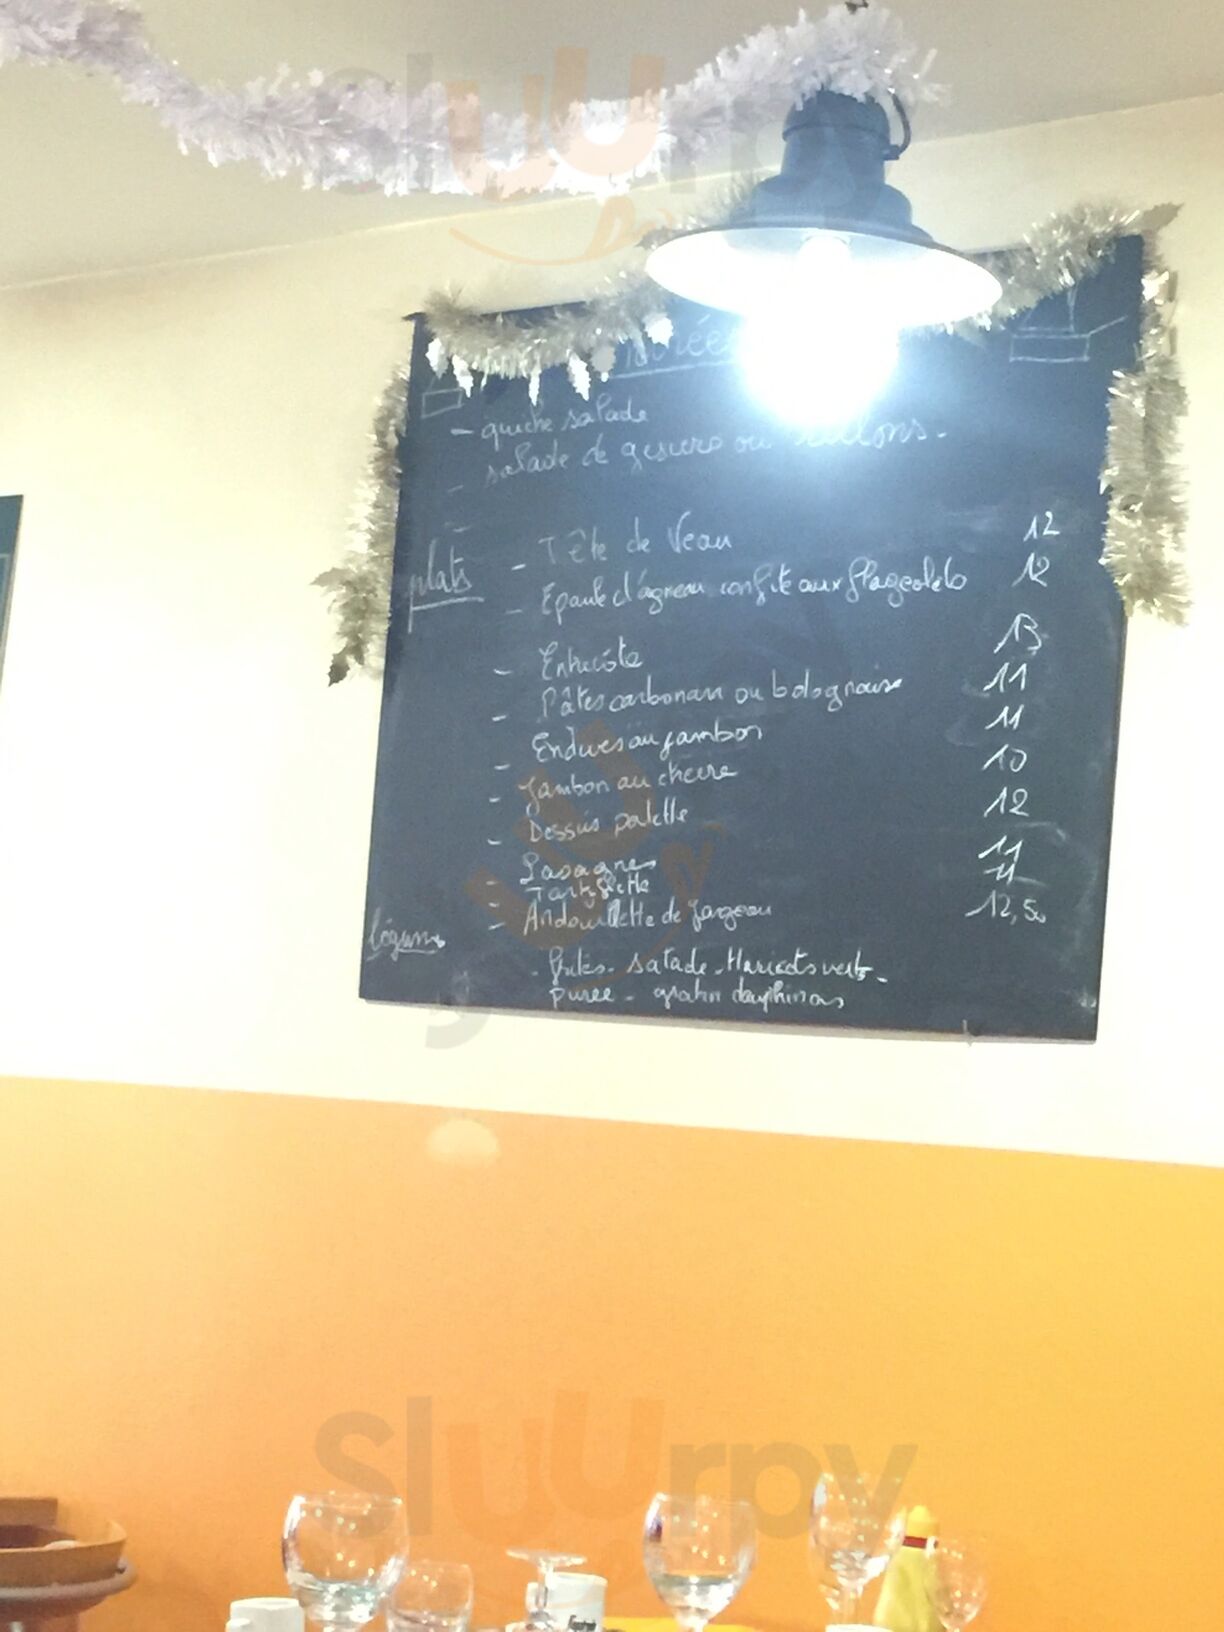 - quiche salade
- salade de gesiers ou
plats - Tête de Veau 12
- Epaule d'agneau confite aux flageolets 12
- Entrecôte 13
- Pâtes carbonara ou bolognaise 11
- Endives au jambon 11
- Jambon au chèvre 10
- Dessus palette 12
- Lasagnes 11
- Tartiflette 11
- Andouillette de Jargeau 12,50
légumes
- frites - salade - Haricots verts -
purée - gratin dauphinois
Sluurpy
Sluurpy
Sluurpy